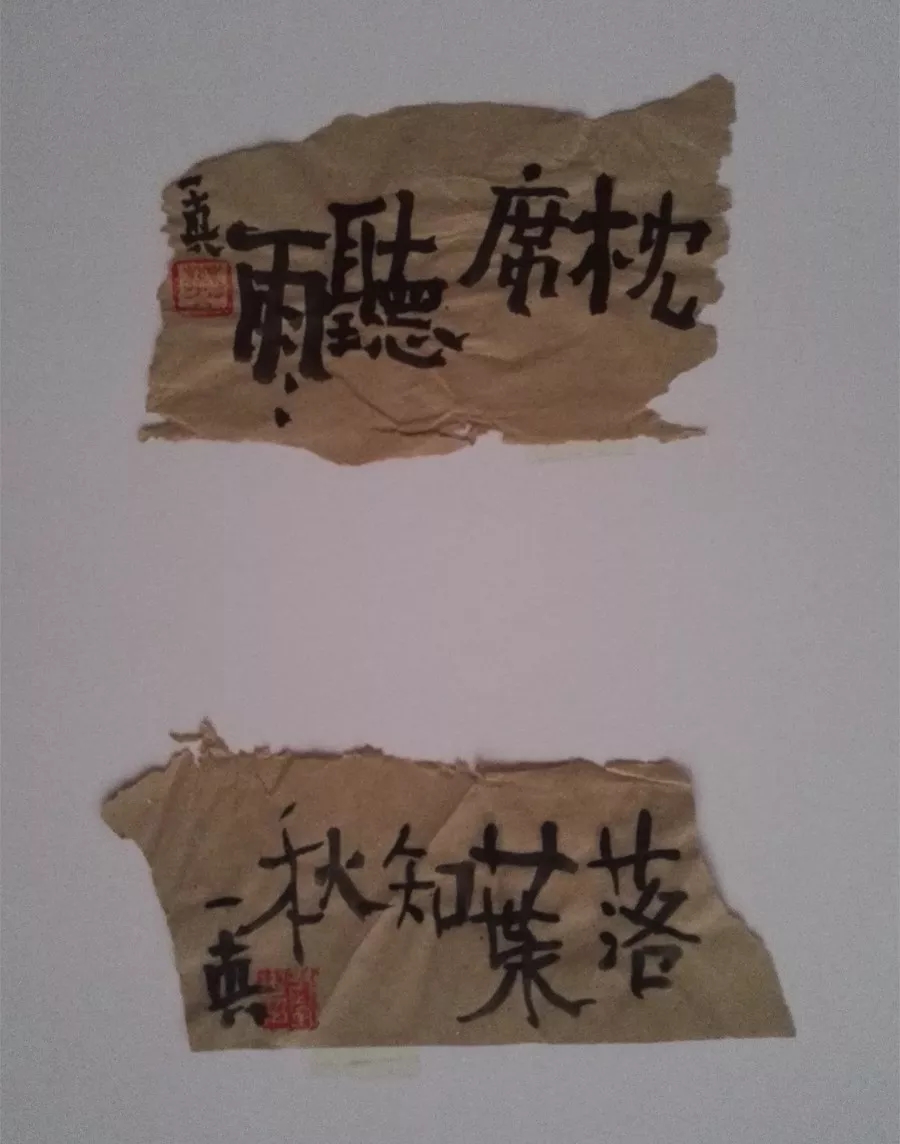 枕席聽雨
一真
落葉知秋
一真